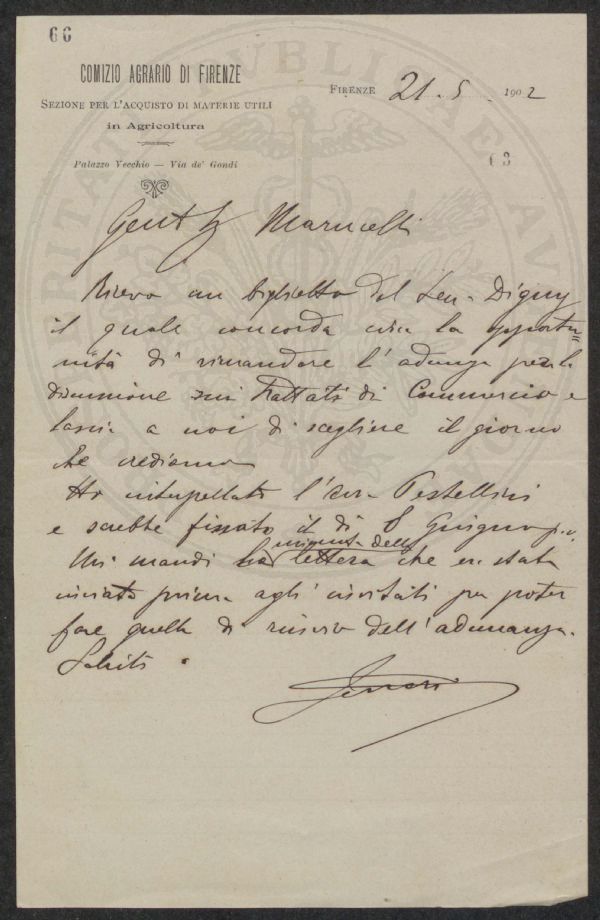 66
COMIZIO AGRARIO DI FIRENZE
SEZIONE PER L'ACQUISTO DI MATERIE UTILI
in Agricoltura
Palazzo Vecchio — Via de' Gondi
FIRENZE 21 . 5 1902
63
Marucelli
Ricevo un biglietto del Sen. Digny
il quale concorda circa la opportu=
nità di rimandare l'adunza per la
discussione sui Trattati di Commercio e
lascia a noi di scegliere il giorno
che crediamo
Ho interpellato l'avv. Pestellini
e sarebbe fissato il dì 8 Giugno p.v.
minuta della
Mi mandi la lettera che era stata
inviata prima agli invitati per poter
fare quella di rinvio dell'adunanza.
Saluti